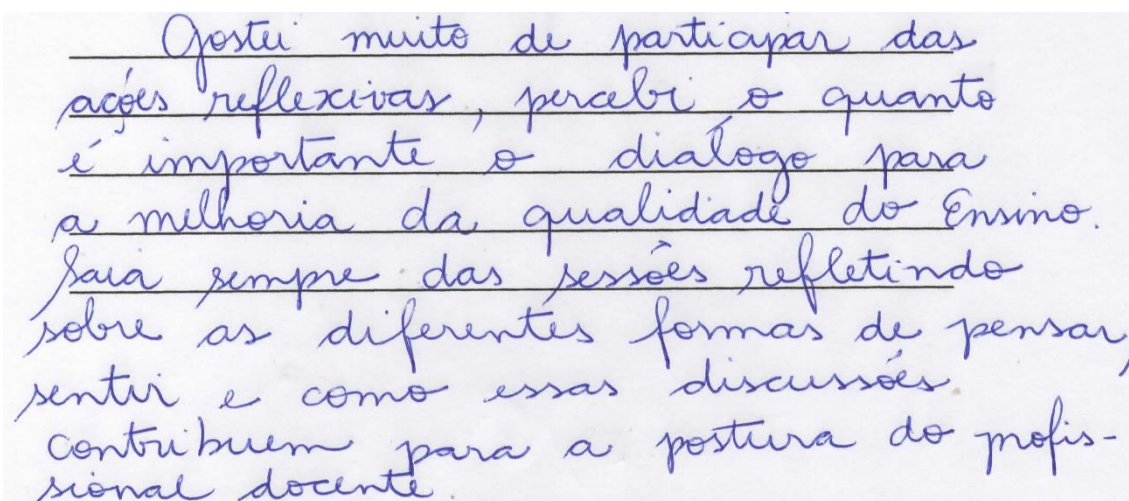 Gostei muito de participar das
ações reflexivas, percebi o quanto
é importante o diálogo para
a melhoria da qualidade do Ensino.
Saia sempre das sessões refletindo
sobre as diferentes formas de pensar,
sentir e como essas discussões
contribuem para a postura do profis-
sional docente